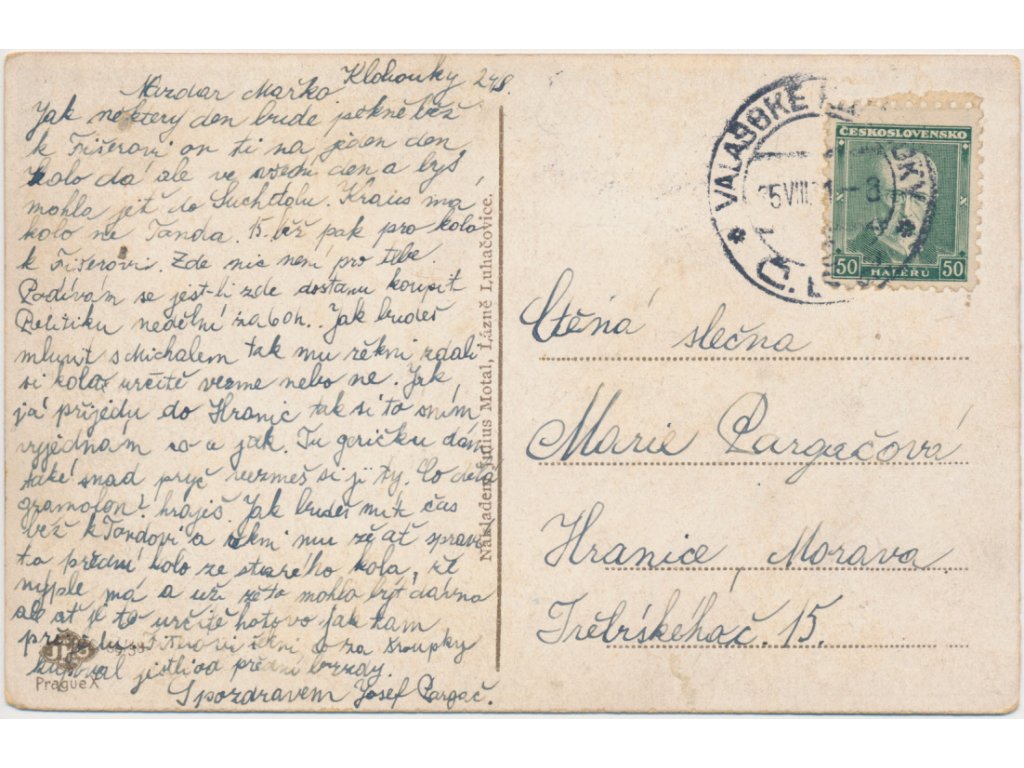 Klobouky 24/8.
Nazdar Mařko
Jak některý den bude pěkně běž
k Fišerovi on ti na jeden den
kolo dá ale ve všední den a byš
mohla jet do Suchdolu. Kraus má
kolo ne Tonda. 15. běž pak pro kolo
k Fišerovi. Zde nic není pro tebe.
Podívám se jest-li zde dostanu koupit
Politiku nedělní za 60h. Jak budeš
mluvit s Michalem tak mu řekni zdali
si kolo určitě vezme nebo ne. Jak
já přijedu do Hranic tak si to s ním
vyjednám co a jak. Tu
také snad pryč vezmeš si ji ty. Co dělá
gramofon? hraješ. Jak budeš mít čas
běž k Tondovi a řekni mu že ať spraví
to přední kolo ze starého kola,
nyple má a už je to mohlo být dávno
ale ať je to určitě hotovo jak tam
Fišerovi řekni co za šroupky
kupoval jestli od přední brzdy.
S pozdravem Josef Pargač.
Prague X
Nákladem Julius Motal, Lázně Luhačovice.
VALAŠSKÉ
ČESKOSLOVENSKO
50 HALÉŘŮ 50
Ctěná slečna
Marie Pargačová
Hranice, Morava
15.